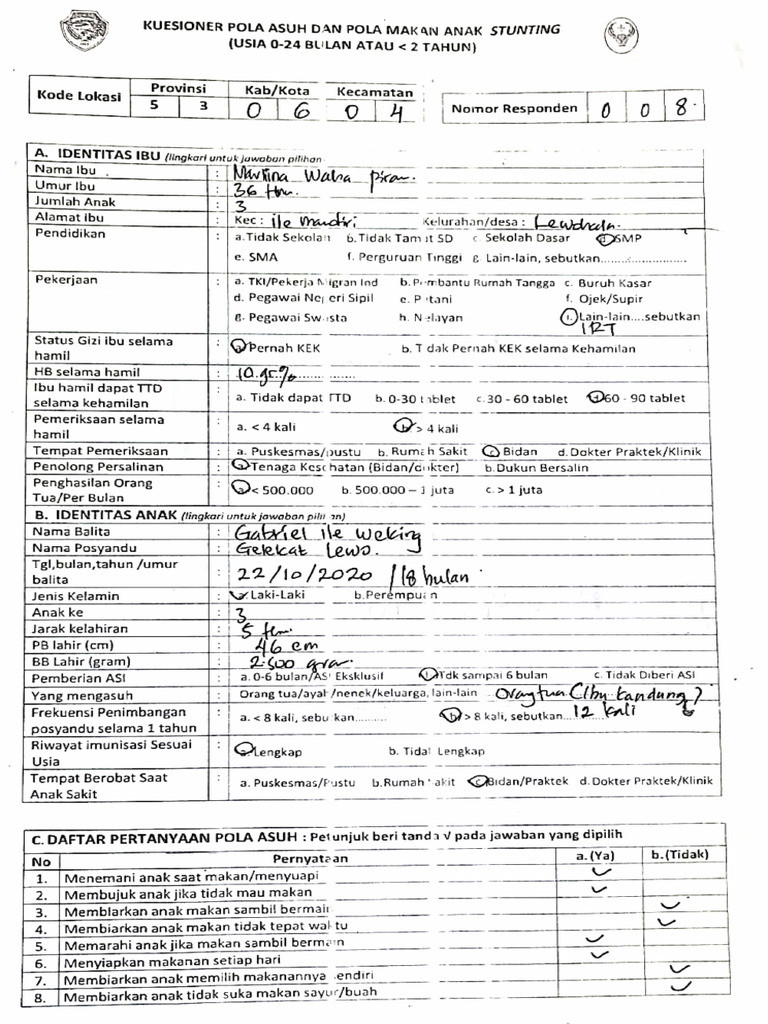 KUESIONER POLA ASUH DAN POLA MAKAN ANAK STUNTING
(USIA 0-24 BULAN ATAU < 2 TAHUN)
Kode Lokasi Provinsi Kab/Kota Kecamatan
5 3 0 6 0 4 Nomor Responden 0 0 8
A. IDENTITAS IBU (lingkari untuk jawaban pilihan
Nama Ibu : Martina Waha
Umur Ibu : 36 thn.
Jumlah Anak : 3
Alamat Ibu : Kec : ile mandiri Kelurahan/desa :
Pendidikan : a.Tidak Sekolah b.Tidak Tamat SD c. Sekolah Dasar d. SMP
e. SMA f. Perguruan Tinggi g. Lain-lain, sebutkan........................
Pekerjaan : a. TKI/Pekerja Migran Ind b. Pembantu Rumah Tangga c. Buruh Kasar
d. Pegawai Negeri Sipil e. Petani f. Ojek/Supir
g. Pegawai Swasta h. Nelayan i. Lain-lain....sebutkan
IRT
Status Gizi ibu selama hamil : a. Pernah KEK b. Tidak Pernah KEK selama Kehamilan
HB selama hamil : 10 gr%................
Ibu hamil dapat TTD selama kehamilan : a. Tidak dapat TTD b. 0-30 tablet c. 30 - 60 tablet d. 60 - 90 tablet
Pemeriksaan selama hamil : a. < 4 kali b. > 4 kali
Tempat Pemeriksaan : a. Puskesmas/pustu b. Rumah Sakit c. Bidan d. Dokter Praktek/Klinik
Penolong Persalinan : a. Tenaga Kesehatan (Bidan/dokter) b.Dukun Bersalin
Penghasilan Orang Tua/Per Bulan : a. < 500.000 b. 500.000 – 1 juta c. > 1 juta
B. IDENTITAS ANAK (lingkari untuk jawaban pilihan)
Nama Balita : Gabriel ile Weking
Nama Posyandu : Gelekat Lewo.
Tgl,bulan,tahun /umur balita : 22/10/2020 /18 bulan
Jenis Kelamin : a. Laki-Laki b.Perempuan
Anak ke : 3
Jarak kelahiran : 5 thn.
PB lahir (cm) : 46 cm
BB Lahir (gram) : 2.500 gram.
Pemberian ASI : a. 0-6 bulan/ASI Eksklusif b. Tdk sampai 6 bulan c. Tidak Diberi ASI
Yang mengasuh : Orang tua/ayah/nenek/keluarga, lain-lain Orangtua (Ibu kandung)
Frekuensi Penimbangan posyandu selama 1 tahun : a. < 8 kali, sebutkan.......... b. > 8 kali, sebutkan....12 kali
Riwayat imunisasi Sesuai Usia : a. Lengkap b. Tidak Lengkap
Tempat Berobat Saat Anak Sakit : a. Puskesmas/Pustu b.Rumah Sakit c. Bidan/Praktek d. Dokter Praktek/Klinik
C. DAFTAR PERTANYAAN POLA ASUH : Petunjuk beri tanda √ pada jawaban yang dipilih
No Pernyataan a. (Ya) b. (Tidak)
1. Menemani anak saat makan/menyuapi ✓
2. Membujuk anak jika tidak mau makan ✓
3. Membiarkan anak makan sambil bermain ✓
4. Membiarkan anak makan tidak tepat waktu ✓
5. Memarahi anak jika makan sambil bermain ✓
6. Menyiapkan makanan setiap hari ✓
7. Membiarkan anak memilih makanannya sendiri ✓
8. Membiarkan anak tidak suka makan sayur/buah ✓